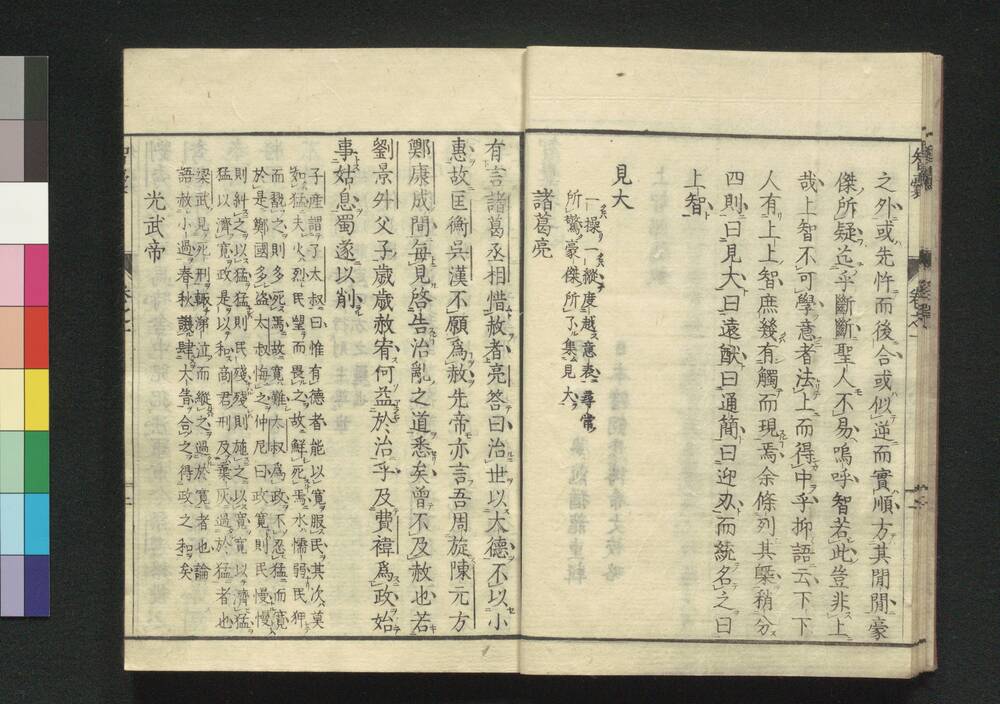 之外或先忤而後合或似逆而實順方其閒閒豪
傑所疑迄乎斷斷聖人不易嗚呼智若此豈非上
哉上智不可學意者法上而得中乎抑語云下下
人有上上智庶幾有觸而現焉余條列其槩稍分
四則曰見大曰遠猷曰通簡曰迎刃而統名之曰
上智
見大
一操一縱度越意表尋常
所驚豪傑所了集見大
諸葛亮
有言諸葛丞相惜赦者亮答曰治世以大德不以小
惠故匡衡吳漢不願爲赦先帝亦言吾周旋陳元方
鄭康成間每見啓告治亂之道悉矣曾不及赦也若
劉景升父子歲歲赦宥何益於治乎及費禕爲政始
事姑息蜀遂以削
子產謂子太叔曰惟有德者能以寬服民其次莫
如猛夫火烈民望而畏之故鮮死焉水懦弱民狎
而翫之則多死焉故寬難太叔爲政不忍猛而寬
於是鄭國多盜太叔悔之仲尼曰政寬則民慢慢
則糾之以猛猛則民殘殘則施之以寬寬以濟猛
猛以濟寬政是以和商君刑及棄灰過於猛者也
梁武見死刑輒涕泣而縱之過於寬者也論
語赦小過春秋譏肆大眚合之得政之和矣
光武帝